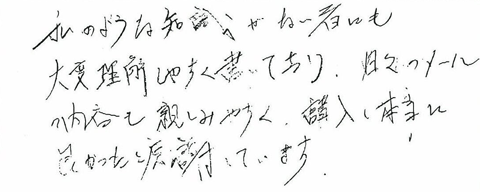 私のような知識がない者にも
大変理解しやすく書いており、日々のメール
の内容も親しみやすく、購入し本当に
良かったと感謝しています。